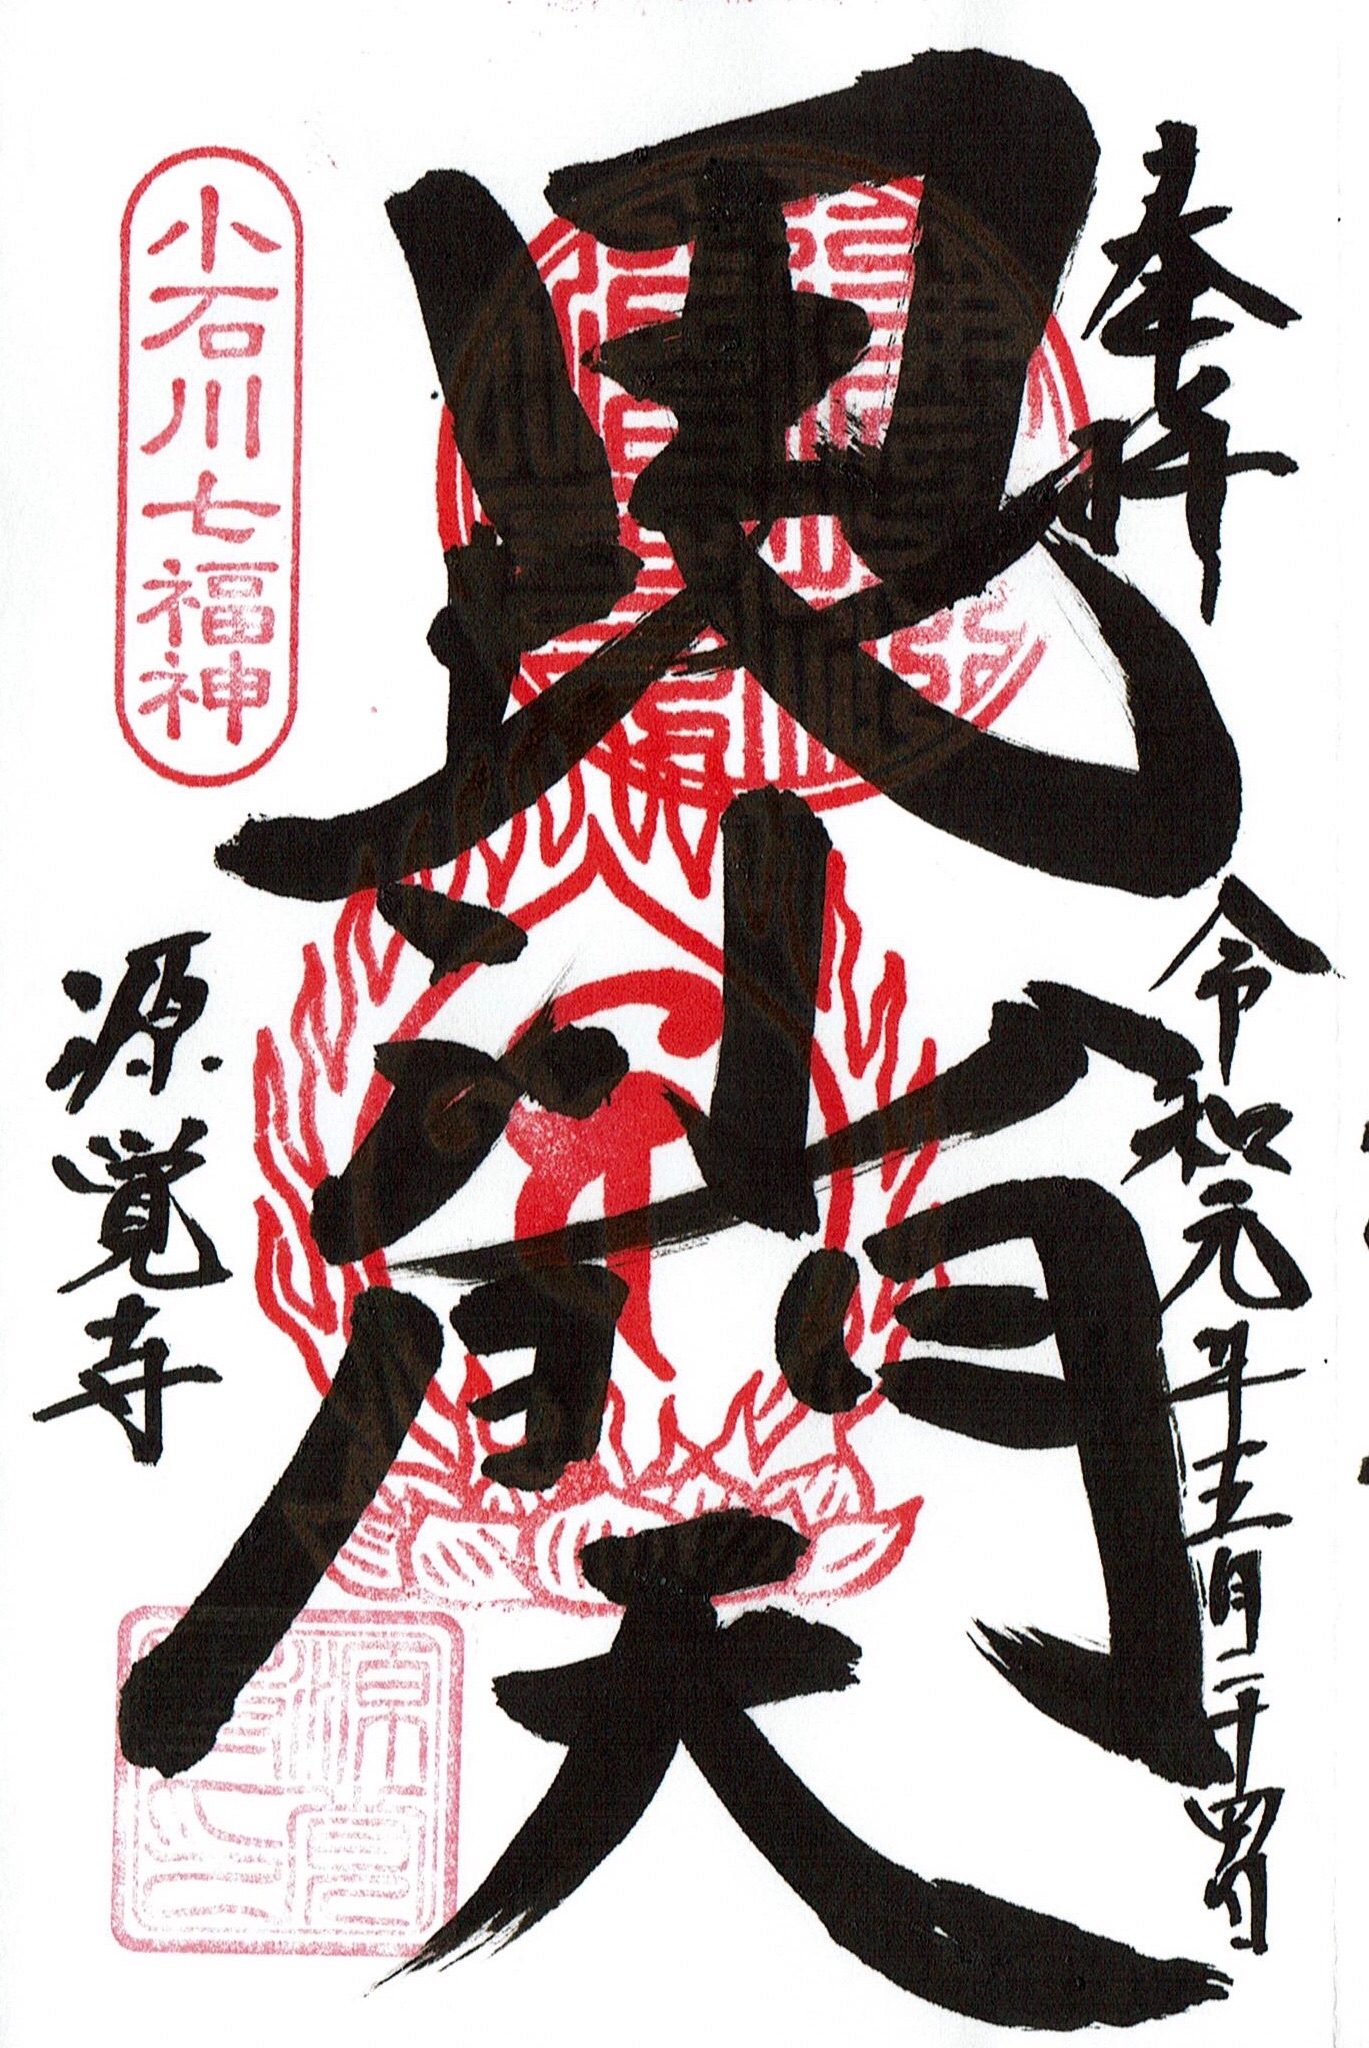 奉拝
令和元年五月二十四日
毘沙門天
小石川七福神
源覚寺